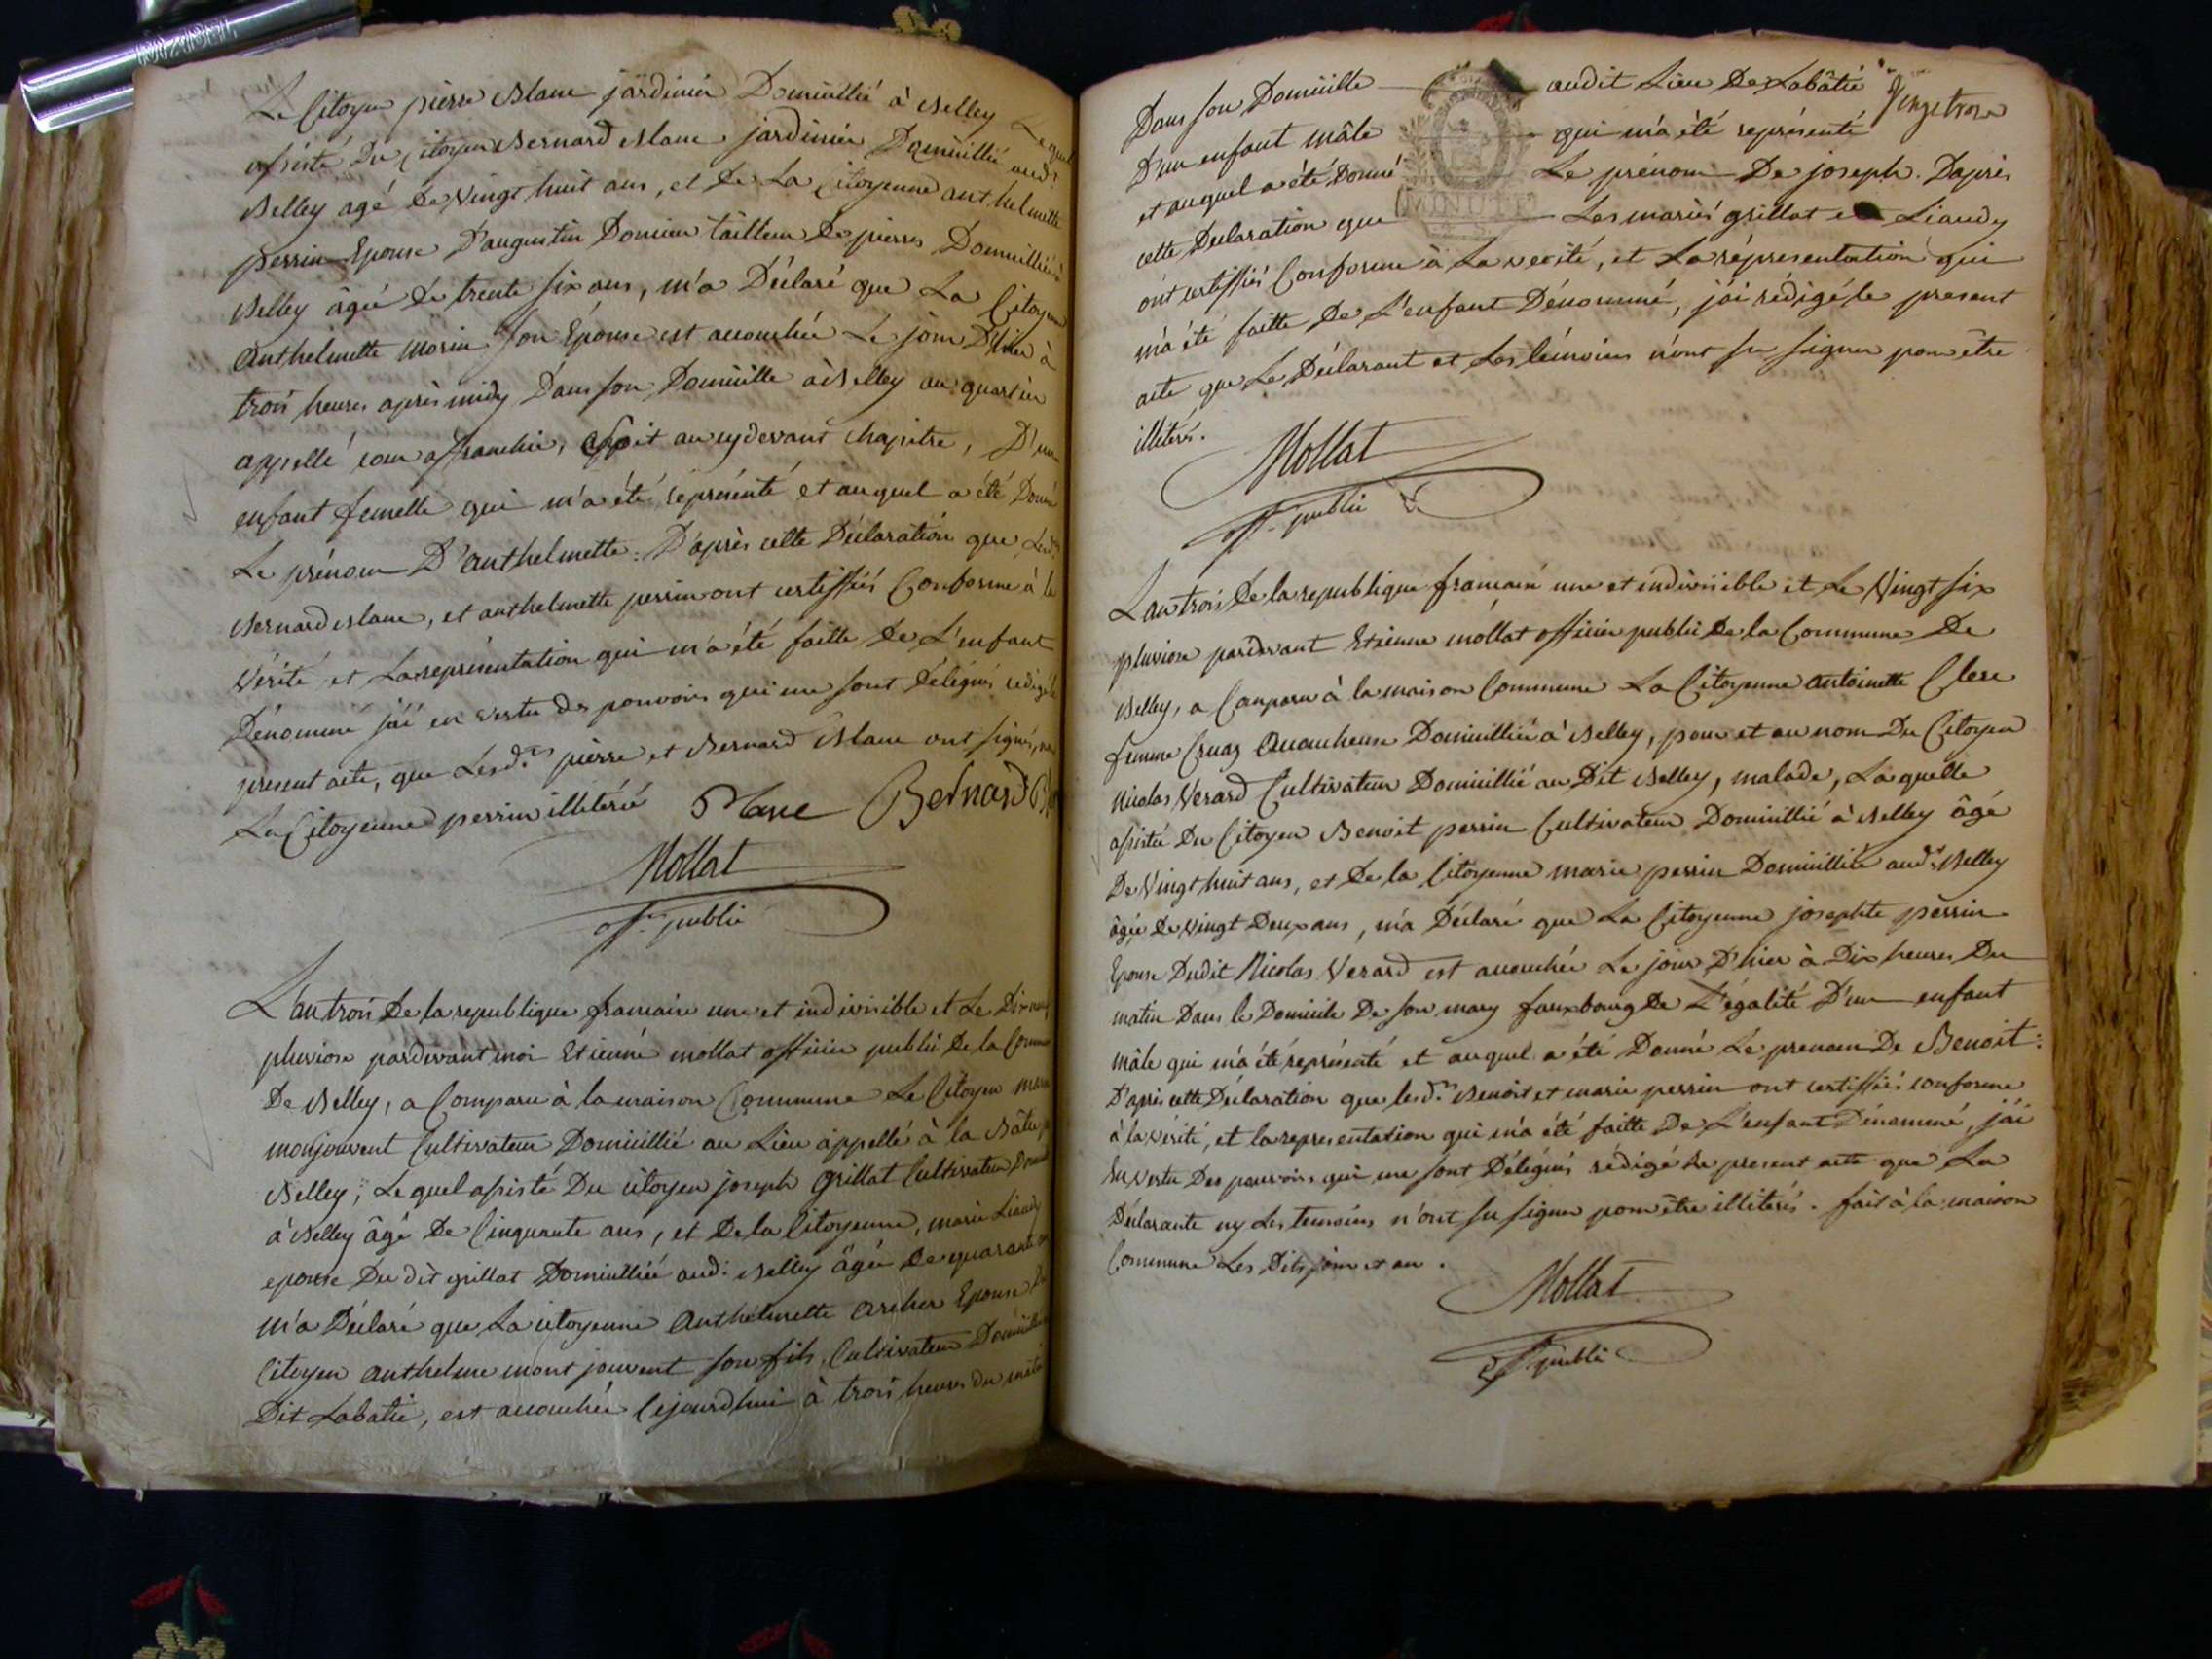 Le Citoyen pierre Blanc jardinier Domicillié à Belley Lequel
assisté Du Citoyen Bernard Blanc jardinier Domicillié aud.t
Belley agé De Vingt huit ans, et De La Citoyenne anthelmette
perrin Epouse D'augustin Domicillié à
Belley âgée De trente six ans, m'a Déclaré que La Citoyenne
Anthelmette morin Son Epouse est accouchée Le jour D'hier à
trois heures après midy Dans son Domicille à Belley au quartier
appellé cour affranchie, au cydevant chapitre, D'un
enfant femelle qui m'a été représenté et auquel a été Donné
Le prénom D'anthelmette. D'après cette Déclaration que Lesd.
Bernard Blanc, et anthelmette perrin ont certiffiés Conforme à la
Vérité et La représentation qui m'a été faitte De L'enfant
Dénommé j'ai en vertu des pouvoirs qui me sont Délégués rédigé le
present acte, que Lesd.ts pierre et Bernard Blanc ont signé,
La Citoyenne perrin illitérée Blanc Bernard
Mollat
off. public
L'an trois De la republique francaise une et indivisible et Le Dix
pluviose pardevant moi Etienne mollat officier public De la Commune
De Belley, a Comparu à la maison Commune Le Citoyen
monjouvent Cultivateur Domicillié au Lieu appellé à la Bâtie
Belley, Lequel assisté Du citoyen joseph Grillat Cultivateur
à Belley âgé De Cinquante ans, et De la Citoyenne, marie Liaudy
epouse Du dit grillat Domicilliée aud. Belley âgée De quarante
m'a Déclaré que La citoyenne Anthelmette archer Epouse Du
Citoyen anthelme mont jouvent son fils, Cultivateur
Dit Labatie, est accouchée Cejourd'hui à trois heures du matin
Dans son Domicille audit Lieu De Labâtie Vingt trois
D'un enfant mâle qui m'a été représenté
et auquel a été Donné Le prénom De joseph. D'après
cette Declaration que MINUTE Les mariés grillat et Liaudy
ont certiffiés Conforme à La verité, et La répresentation qui
m'a été faitte De L'enfant Dénommé, j'ai rédigé le present
acte que Le Déclarant et Les témoins n'ont su signer pour être
illitérés.
Mollat
off. public
L'an trois De la republique francaise une et indivisible et Le Vingt six
pluviose pardevant Etienne mollat officier public De la Commune De
Belley, a Comparu à la maison Commune La Citoyenne Antoinette Clerc
femme Cruaz Accoucheuse Domicilliée à Belley, pour et au nom Du Citoyen
Nicolas Verard Cultivateur Domicillié au Dit Belley, malade, Laquelle
assistée Du Citoyen Benoit perrin Cultivateur Domicillié à Belley âgé
De Vingt huit ans, et De la Citoyenne marie perrin Domicilliée aud.t Belley
âgée De vingt Deux ans, m'a Déclaré que La Citoyenne josephte perrin
Epouse Dudit Nicolas Verard est accouchée Le jour D'hier à Dix heures Du
matin Dans le Domicile De son mary fauxbourg De L'égalité D'un enfant
mâle qui m'a été représenté et auquel a été Donné Le prenom De Benoit.
D'après cette Déclaration que lesd.ts Benoit et marie perrin ont certiffiés conforme
à la vérité, et la representation qui m'a été faitte De L'enfant Dénommé, j'ai
En vertu Des pouvoirs qui me sont Délégués rédigé Le present acte que La
Déclarante ny Les temoins n'ont su signer pour être illiterés. fait à la maison
Commune Les Dits jour et an.
Mollat
off. public